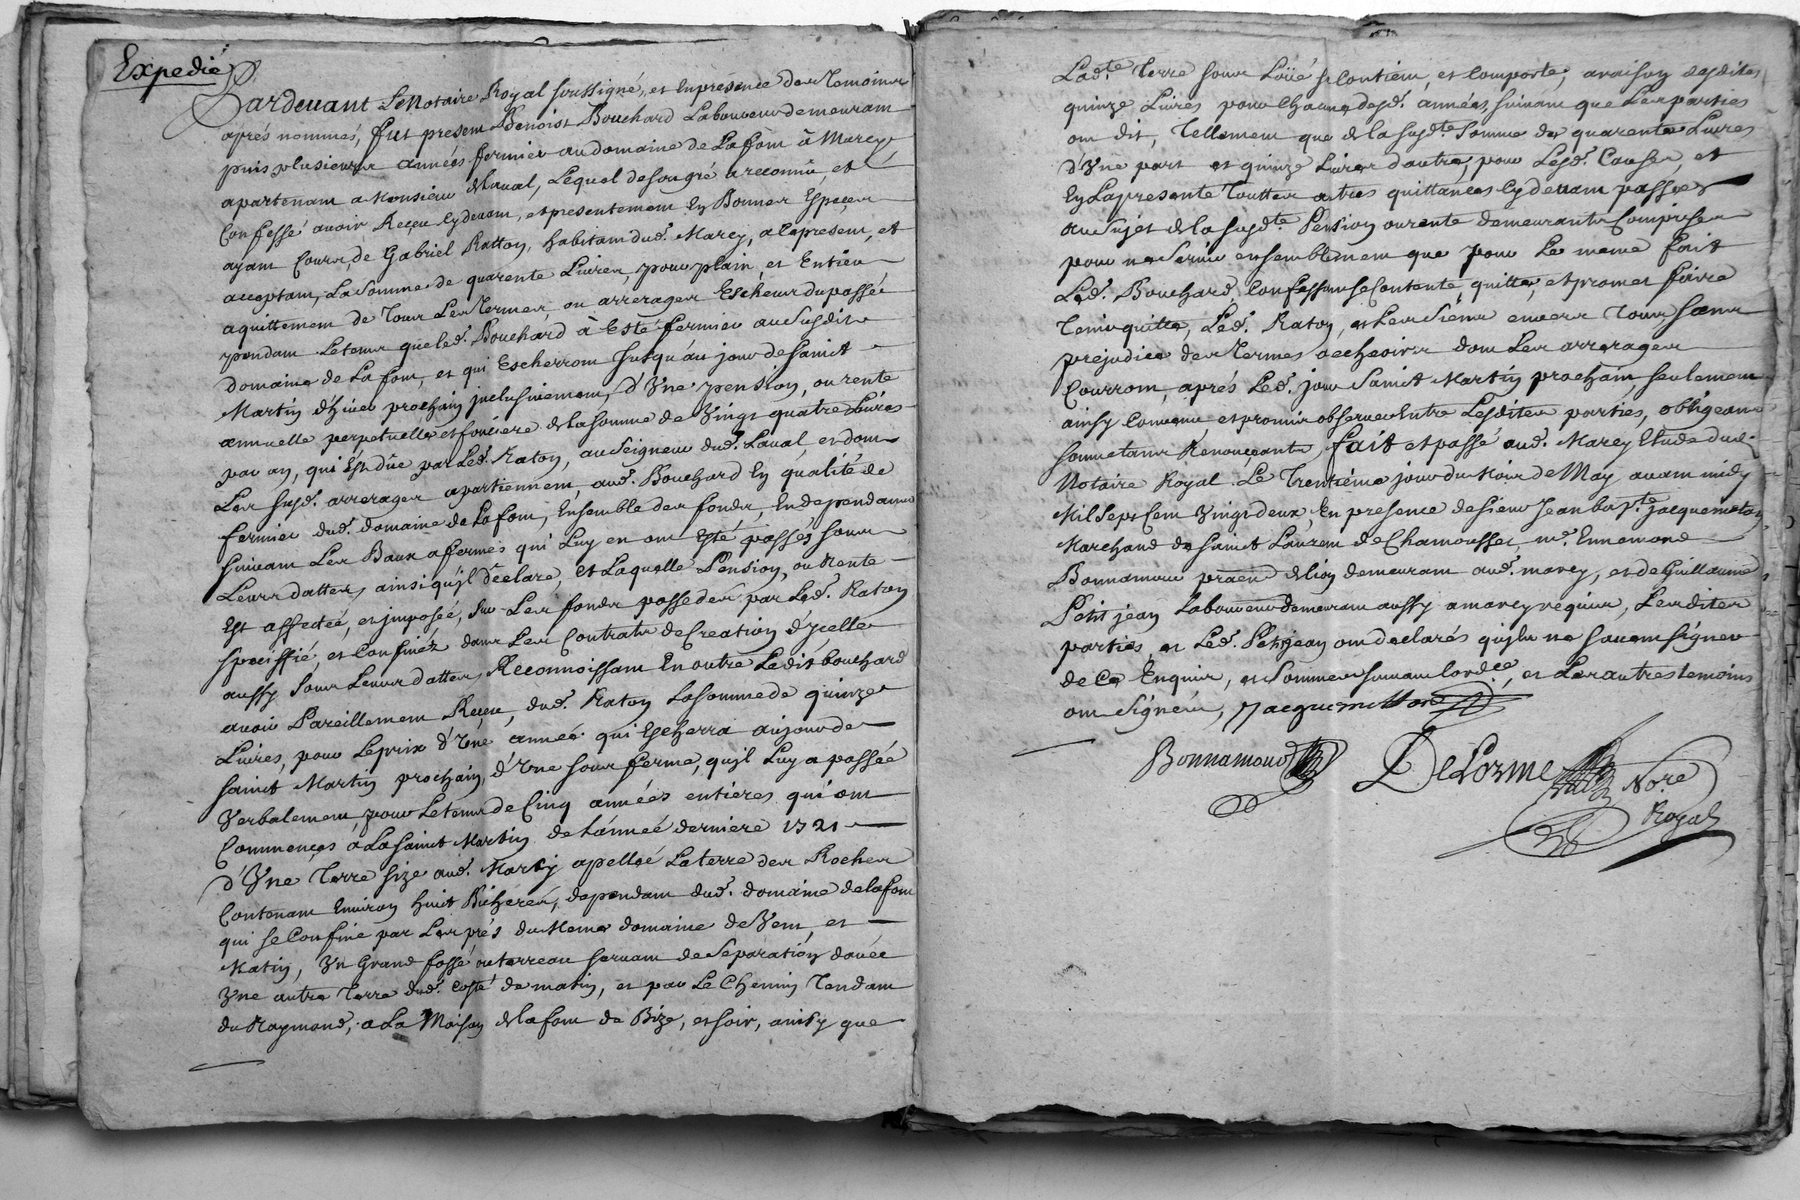 Expedié
Pardevant Le Notaire Royal soussigné, et En présence des Temoins
aprés nommés, fut present Benoist Bouchard Laboureur demeurant
puis plusieurs années fermier au domaine de Lafont à Marcy
apartenant a Monsieur de Laval, Lequel de son gré a reconnû, et
Confessé avoir Reçeu Cy devant, et presentement En Bonnes Espeçes
ayant Cours, de Gabriel Ratton, habitant dud. Marcy, a Cepresent, et
acceptant, La Somme de quarente Livres, pour plain, et Entier
aquittement de Tous Les Termes, ou arrerages Escheus du passé
pendant Letems que led. Bouchard à Esté fermier au Susdit
domaine de Lafont, et qui Escherront Jusqu'au jour de Sainct
Martin d'hiver prochain jnclusivement, d'Une pension, ou rente
annuelle perpetuelle et fonciere de La somme de Vingt quatre Livres
par an, qui Est dûe par Led. Raton, au Seigneur dud. Laval, et dont
Les susd. arrerages apartiennent, aud. Bouchard En qualité de
fermier dud. domaine de Lafont, Ensemble des fonds, En dependants
suivant Les Baux afermes qui Luy en ont Esté passés sous
Leurs dattes, ainsi qu'jl déclare, Et Laquelle Pension, ou Rente
Est affectée, et jmposée, sur Les fonds possedés par Led. Raton
speciffié, et Confinés dans Les Contrats de Creation d'jcelle
aussy sous Leurs dattes, Reconnoissant En outre Ledit bouchard
avoir Pareillement Reçeu, dud. Raton La somme de quinze
Livres, pour Le prix d'Une année qui Escherra au jour de
Sainct Martin prochain, d'Une sous ferme, qu'jl Luy a passée
Verbalement, pour Letems de Cinq années entieres qui ont
Commençés a La Sainct Martin de L'année derniere 1721
d'Une Terre size aud. Marcy apellée La terre des Rochers
Contenant Environ huit Bicherées, dependant dud. domaine de lafont
qui se Confine par Les prés du Meme domaine de Vent, et
Matin, Un Grand fossé ou terreau servant de Separation d'avec
Une autre Terre dud. Costé de matin, et par Le Chemin Tendant
du Raymond, a La Maison de lafont de Bize, et soir, ainsy que
Lad.te Terre sous Loüé se Contient, et Comporte, a raison desdites
quinze Livres pour Chacune desd. années, suivant que Les parties
ont dit, Tellement que de la susd.te Somme de quarente Livres
d'Une part et quinze Livres d'autre, pour Lesd. Causes, et
En La presente Touttes autres quittances Cy devant passées
au Sujet de la susd.te Pension ou rente demeurants Comprises
pour ne Servir ensemblement que pour Le meme fait
Led. Bouchard, Confessant se Contente, quitte, et promet faire
Tenir quitte, Led. Raton, et Les Siens envers Tous sans
prejudice des Termes a echeoir dont Les arrerages
Courront, aprés Led. jour Sainct Martin prochain seulement
ainsy Convenu et promis observer Entre Lesdites parties, obligeant
soumettans Renonçeants fait et passé aud. Marcy Etude dud.
Notaire Royal Le Trentiéme jour du Mois de May avant midy
Mil Sept Cent Vingt deux, En presence de Sieur Jean bap.te jacquemetton
Marchand de Sainct Laurent de Chamousset, m.e Ennemond
Bonnamour de lion demeurant aud. marcy, et de Guillaume
Petit jean Laboureur demeurant aussy a marcy requis, Lesdites
parties, et Led. Petitjean ont declarés qu'jls ne scavent signer
de Ce Enquis, et Sommés suivant L'ord.ce, et Les autres temoins
ont signéés, Jacquemetton
Bonnamour DeLorme No.re
Royal